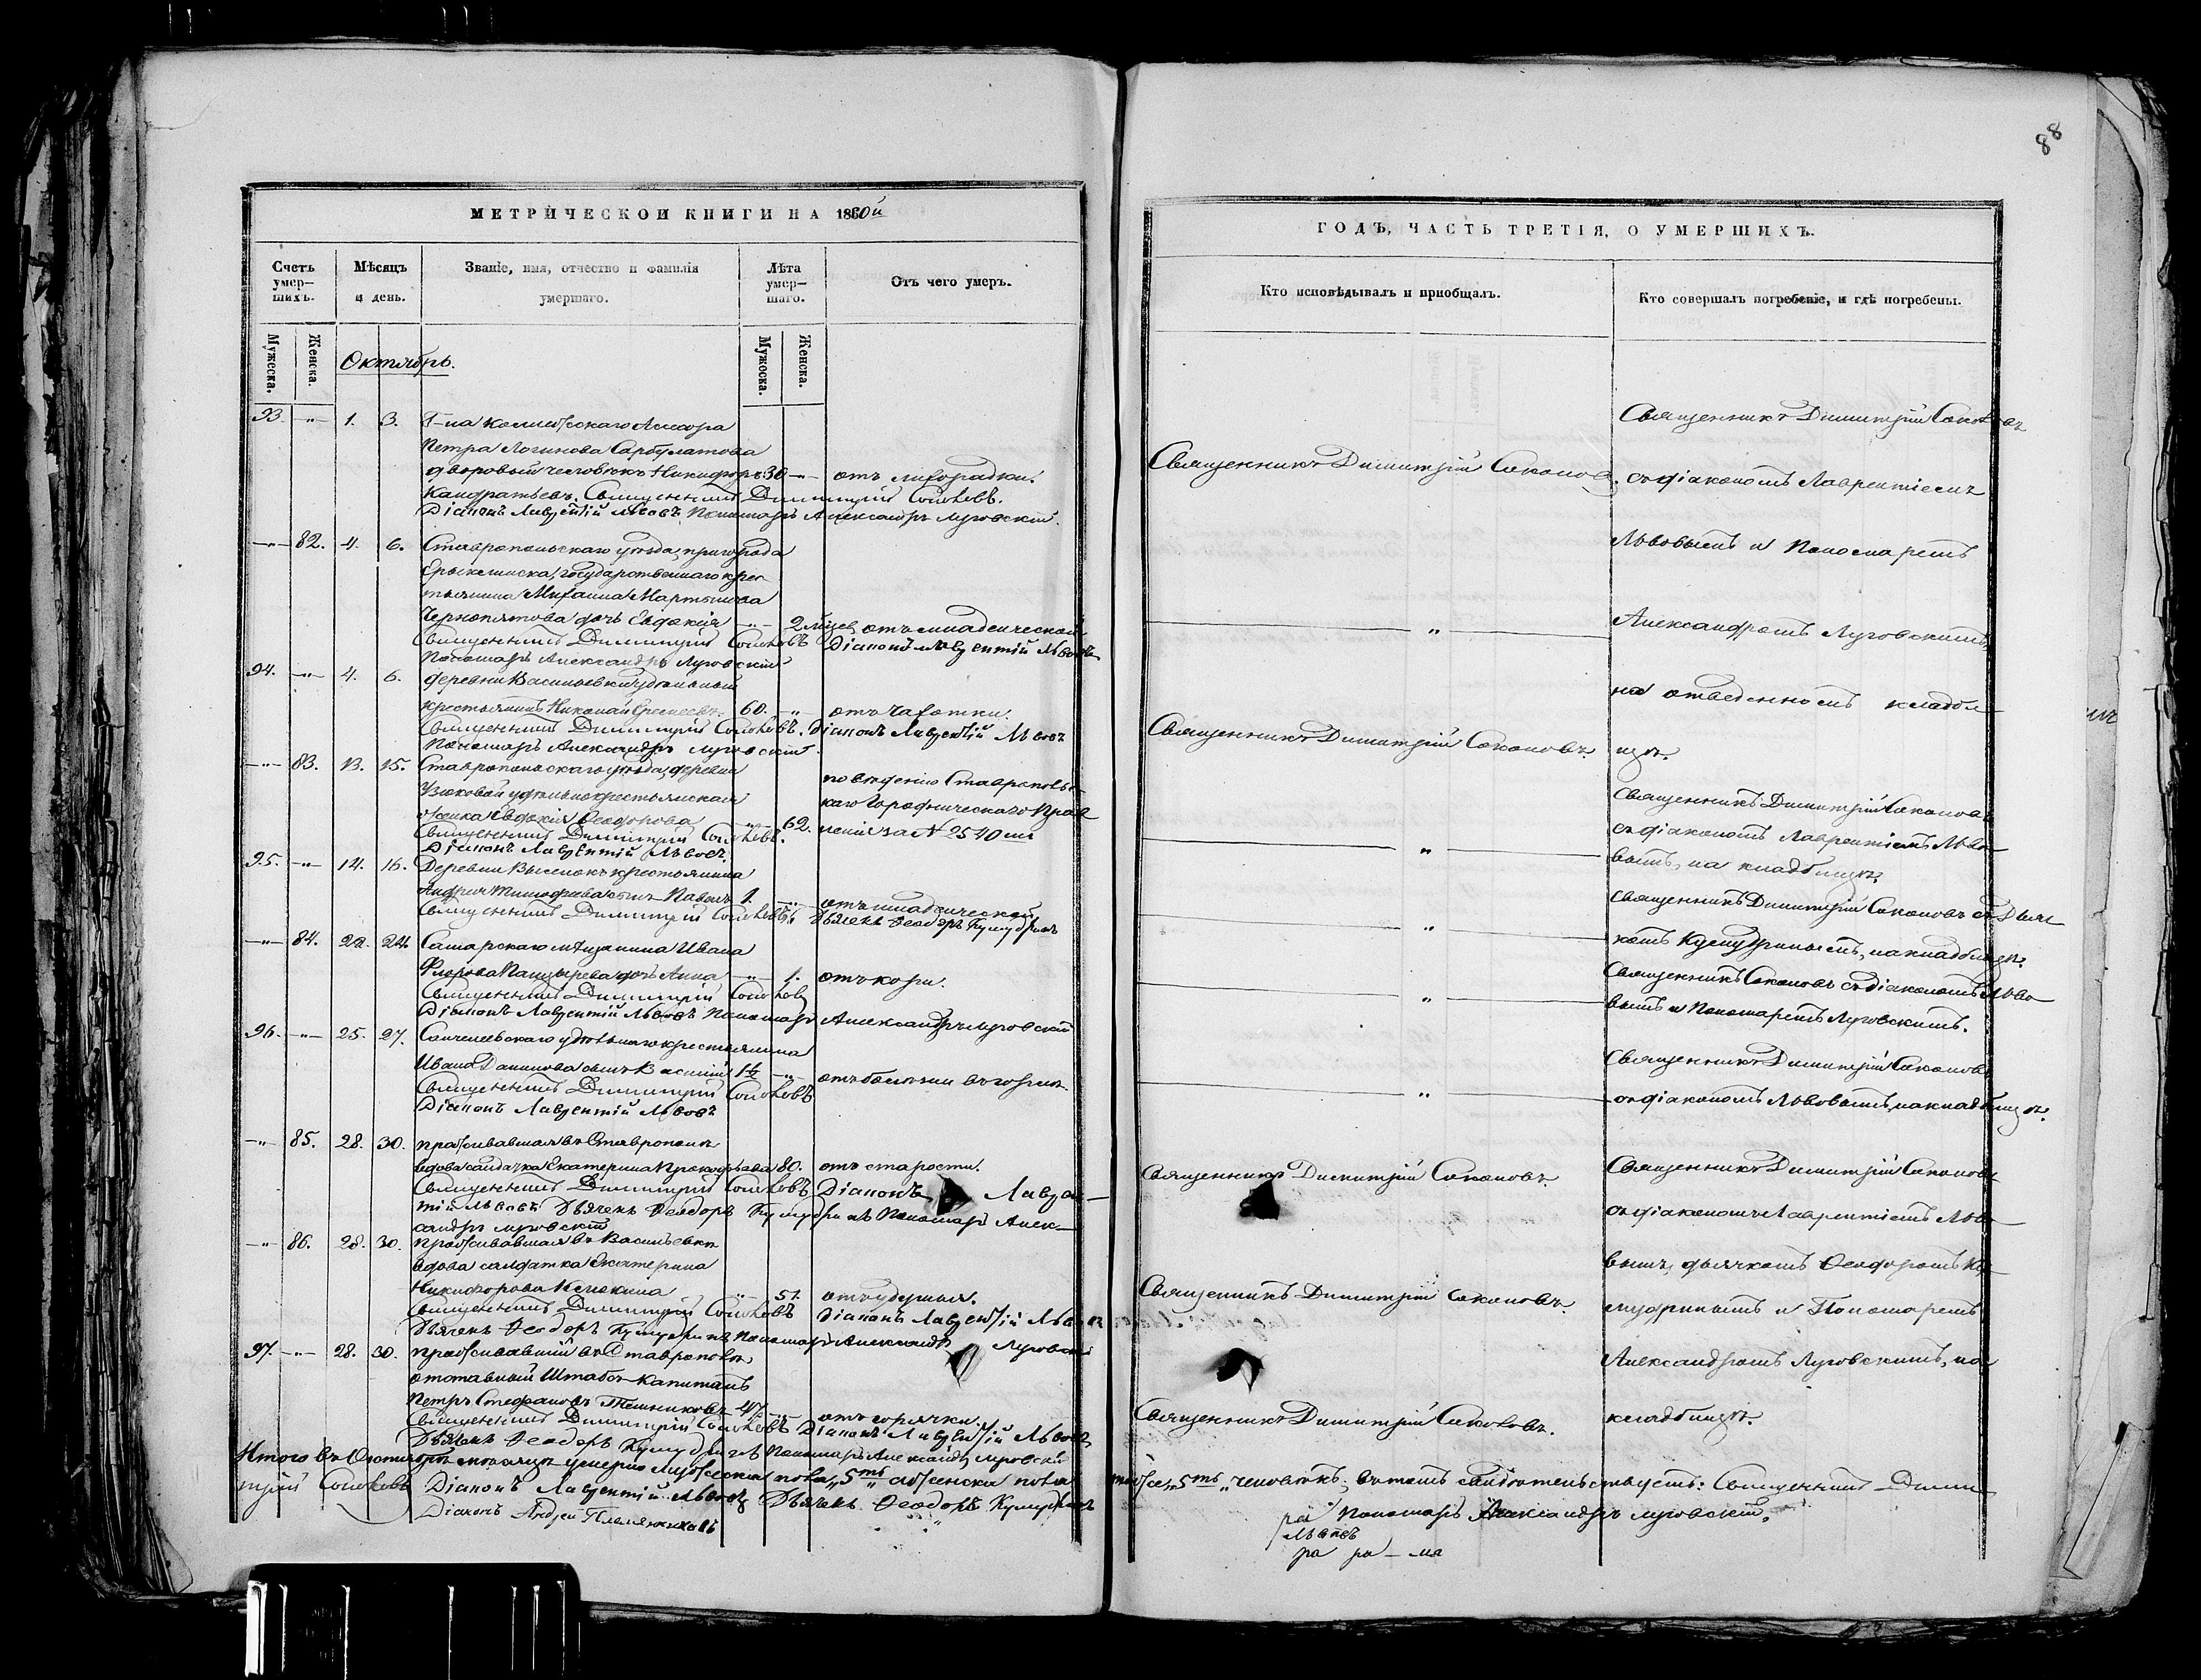 88
МЕТРИЧЕСКОЙ КНИГИ НА 1860й
Счетъ умер-шихъ.
Мѣсяцъ и день.
Званіе, имя, отчество и фамилія умершаго.
Лѣта умер-шаго.
Отъ чего умеръ.
Мужеска.
Женска.
Мужеска.
Женска.
Октябрь.
93. -„- 1. 3. Г-на Коллежскаго Ассесора
Петра Логинова Сарбулатова
дворовый человѣкъ Никифоръ 30 -„- отъ лихорадки.
Кандратьевъ. Священникъ Димитрій Соколовъ.
Діаконъ Лаврентій Львовъ Пономарь Александръ Луговскій.
-„- 82. 4. 6. Ставропольскаго уѣзда, пригорода
Ерыклинска, государственнаго крес-
тьянина Михаила Мартынова
Чернопятова дочь Евдокія -„- 2 мѣсец. отъ младенческой
Священникъ Димитрій Соколовъ Діаконъ Лаврентій Львовъ
Пономарь Александръ Луговскій
94. -„- 4. 6. деревни Васильевки удѣльный
крестьянинъ Николай Еремеевъ 60. -„- отъ чахотки.
Священникъ Димитрій Соколовъ. Діаконъ Лаврентій Львовъ
Пономарь Александръ Луговскій.
-„- 83. 13. 15. Ставропольскаго уѣзда, деревни
Узюковой удѣльнокрестьянская
Евдокія Феодорова -„- 62.
по вѣденію Ставрополь-
скаго Городническаго Прав
ленія за № 2540мъ
Священникъ Димитрій Соколовъ.
Діаконъ Лаврентій Львовъ.
95. -„- 14. 16. Деревни Выселокъ крестьянина
Андрея Тимофѣева сынъ Павелъ 1. -„- отъ младенческой
Священникъ Димитрій Соколовъ Дьячекъ Феодоръ Кумудринъ
-„- 84. 22. 24. Самарскаго мѣщанина Ивана
Флорова Панцырева дочь Анна -„- 1. отъ кори.
Священникъ Димитрій Соколовъ
Діаконъ Лаврентій Львовъ Пономарь Александръ Луговскій
96. -„- 25. 27. Санчелеевскаго удѣльнаго крестьянина
Ивана Данилова сынъ Василій -„- отъ болѣзни въ горлѣ.
Священникъ Димитрій Соколовъ
Діаконъ Лаврентій Львовъ
-„- 85. 28. 30. проживавшая въ Ставрополѣ
вдова салдатка Екатерина Прокофьева 80. отъ старости.
Священникъ Димитрій Соколовъ Діаконъ Лаврен-
тій Львовъ Дьячекъ Феодоръ Кумудринъ Пономарь Алек-
сандръ Луговскій
-„- 86. 28. 30. проживавшая въ Васильевкѣ
вдова салдатка Екатерина
Никифорова -„- 51. отъ удушья.
Священникъ Димитрій Соколовъ Діаконъ Лаврентій Львовъ
Дьячекъ Феодоръ Кумудринъ Пономарь Александръ Луговскій
97. -„- 28. 30. проживавшій въ Ставрополѣ
отставный Штабсъ-Капитанъ
Петръ Стефановъ 47 -„- отъ горячки.
Священникъ Димитрій Соколовъ Діаконъ Лаврентій Львовъ
Дьячекъ Феодоръ Кумудринъ Пономарь Александръ Луговскій
Итого въ Октябрѣ мѣсяцѣ умерло мужеска пола „5ть„ а женска пола
трій Соколовъ Діаконъ Лаврентій Львовъ Дьячекъ Феодоръ Кумудринъ
Діаконъ Андрей Племянниковъ
ГОДЪ, ЧАСТЬ ТРЕТІЯ, О УМЕРШИХЪ.
Кто исповѣдывалъ и пріобщалъ.
Кто совершалъ погребеніе, и гдѣ погребены.
Священникъ Димитрій Соколовъ.
„
Священникъ Димитрій Соколовъ.
„
„
„
„
Священникъ Димитрій Соколовъ.
Священникъ Димитрій Соколовъ.
Священникъ Димитрій Соколовъ.
Священникъ Димитрій Соколовъ
съ діакономъ Лаврентіемъ
Львовымъ и Пономаремъ
Александромъ Луговскимъ,
на отведенномъ кладби-
щѣ.
Священникъ Димитрій Соколовъ
съ діакономъ Лаврентіемъ Льво-
вымъ, на кладбищѣ.
Священникъ Димитрій Соколовъ съ Дьяч
комъ Кумудринымъ, на кладбищѣ.
Священникъ Соколовъ съ діакономъ Льво-
вымъ и Пономаремъ Луговскимъ.
Священникъ Димитрій Соколовъ
съ діакономъ Львовымъ, на кладбищѣ.
Священникъ Димитрій Соколовъ
съ діакономъ Лаврентіемъ Льво-
вымъ, дьячкомъ Феодоромъ Ку-
мудринымъ и Пономаремъ
Александромъ Луговскимъ, на
кладбищѣ.
тоже „5ть„ человѣкъ; въ томъ свидѣтельствуетъ: Священникъ Дими
Пономарь Александръ Луговскій.